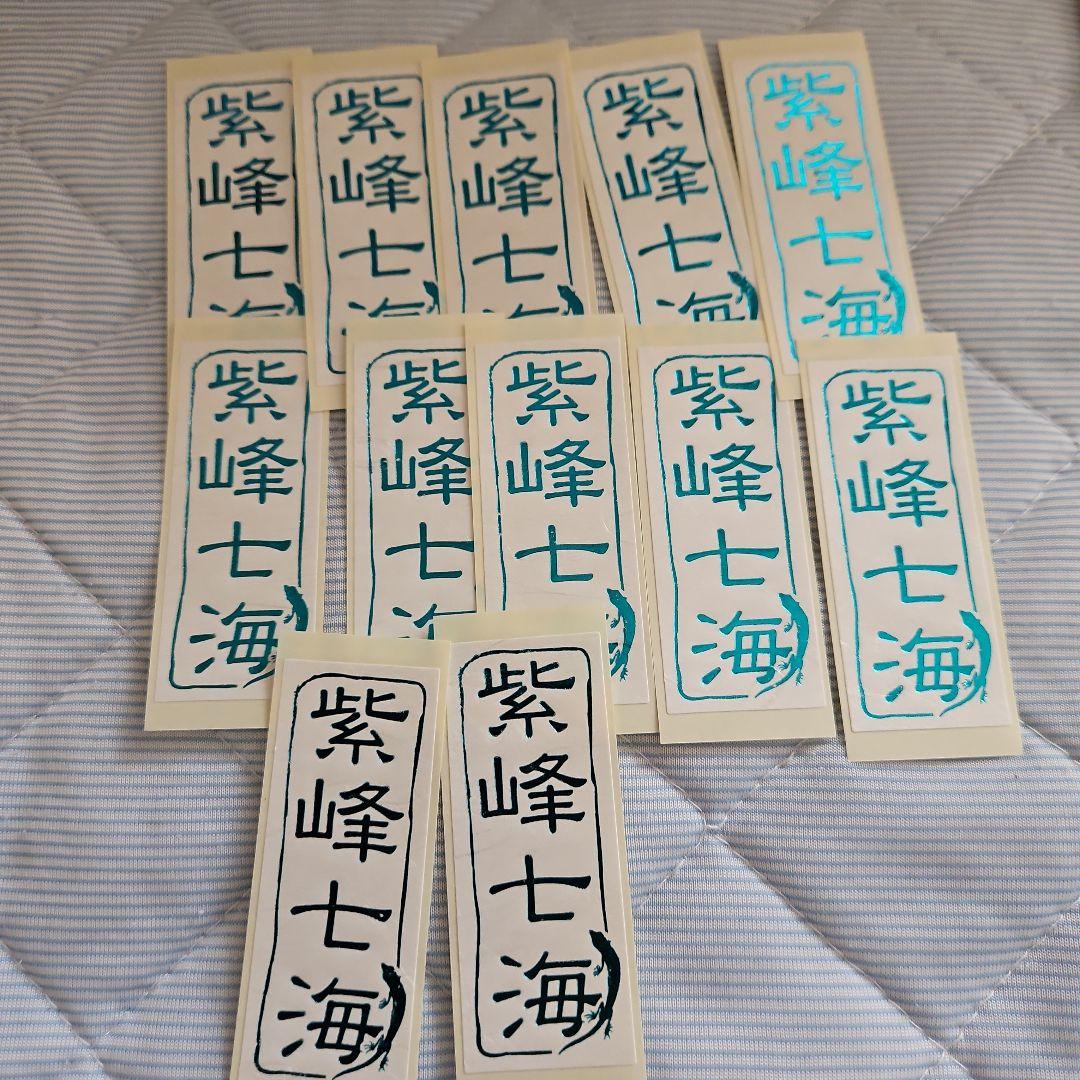 紫峰七海
紫峰七海
紫峰七海
紫峰七海
紫峰七海
紫峰七海
紫峰七海
紫峰七海
紫峰七海
紫峰七海
紫峰七海
紫峰七海